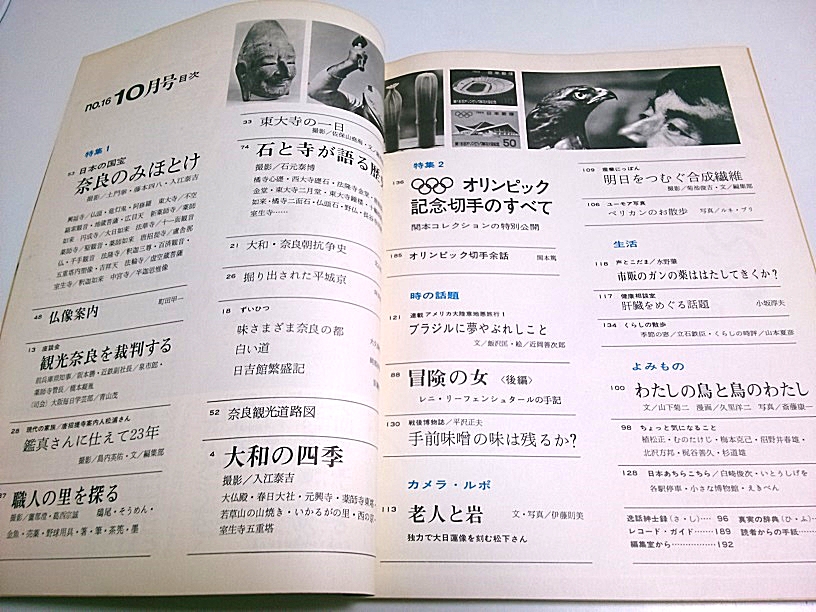 no.16 10月号 目次
特集1
53 日本の国宝
奈良のみほとけ
撮影/土門拳・藤本四八・入江泰吉
48 仏像案内
町田甲一
13 座談会
観光奈良を裁判する
28 現代の家族/唐招提寺案内人松浦さん
鑑真さんに仕えて23年
撮影/島内英佑・文/編集部
職人の里を探る
金魚・売薬・野球用具・箸・筆・茶筅・墨
33 東大寺の一日
74 石と寺が語る歴
撮影/石元泰博
室生寺……
21 大和・奈良朝抗争史
26 掘り出された平城京
18 ずいひつ
味さまざま奈良の都
白い道
日吉館繁盛記
52 奈良観光道路図
4 大和の四季
撮影/入江泰吉
大仏殿・春日大社・元興寺・薬師寺東塔
若草山の山焼き・いかるがの里・西の
室生寺五重塔
日本郵便
50
特集2
136 オリンピック
記念切手のすべて
関本コレクションの特別公開
185 オリンピック切手余話
時の話題
121 連載アメリカ大陸意地悪旅行1
ブラジルに夢やぶれしこと
文/飯沢匡・絵/近岡善次郎
88 冒険の女〈後編〉
レニ・リーフェンシュタールの手記
130 戦後博物誌/平沢正夫
手前味噌の味は残るか?
カメラ・ルポ
113 老人と岩
文・写真/伊藤則美
独力で大日蓮像を刻む松下さん
109 産業にっぽん
明日をつむぐ合成繊維
撮影/菊池俊吉・文/編集部
106 ユーモア写真
ペリカンのお散歩 写真/ルネ・ブリ
生活
118 声とこだま/水野肇
市販のガンの薬ははたしてきくか?
117 健康相談室
肝臓をめぐる話題
134 くらしの散歩
季節の窓/立石鉄臣・くらしの時評/山本夏彦
よみもの
100 わたしの鳥と鳥のわたし
98 ちょっと気になること
植松正・むのたけじ・梅本克己・沼野井春雄・
北沢方邦・梶谷善久・杉道雄
128 日本あちらこちら/臼崎俊次・いとうしげを
各駅停車・小さな博物館・えきべん
逸話紳士録(さ・し)…… 96 真実の辞典(ひ・ふ)
レコード・ガイド……189 読者からの手紙
編集室から……192